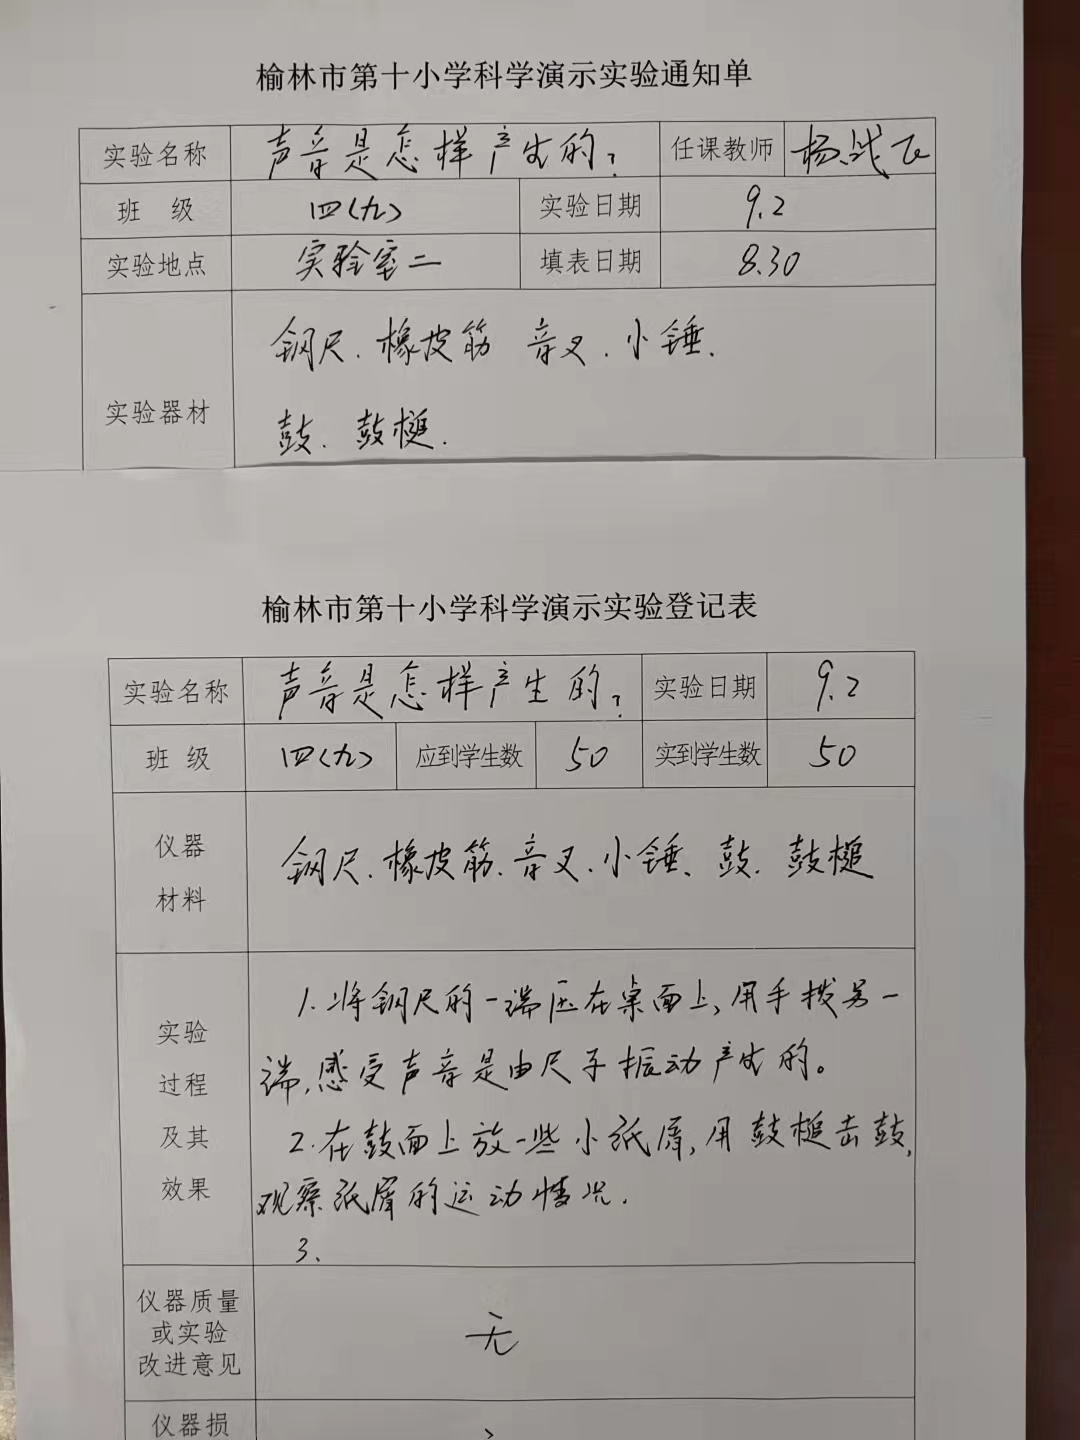 榆林市第十小学科学演示实验通知单
实验名称 声音是怎样产生的? 任课教师 杨战飞
班 级 四(九) 实验日期 9.2
实验地点 实验室二 填表日期 8.30
钢尺.橡皮筋 音叉.小锤.
实验器材
鼓.鼓槌.
榆林市第十小学科学演示实验登记表
实验名称 声音是怎样产生的? 实验日期 9.2
班 级 四(九) 应到学生数 50 实到学生数 50
仪器
材料
钢尺.橡皮筋.音叉.小锤、鼓.鼓槌
实验
过程
及其
效果
1.将钢尺的一端压在桌面上,用手拨另一
端,感受声音是由尺子振动产生的。
2.在鼓面上放一些小纸屑,用鼓槌击鼓,
观察纸屑的运动情况.
3、
仪器质量
或实验
改进意见
无
仪器损